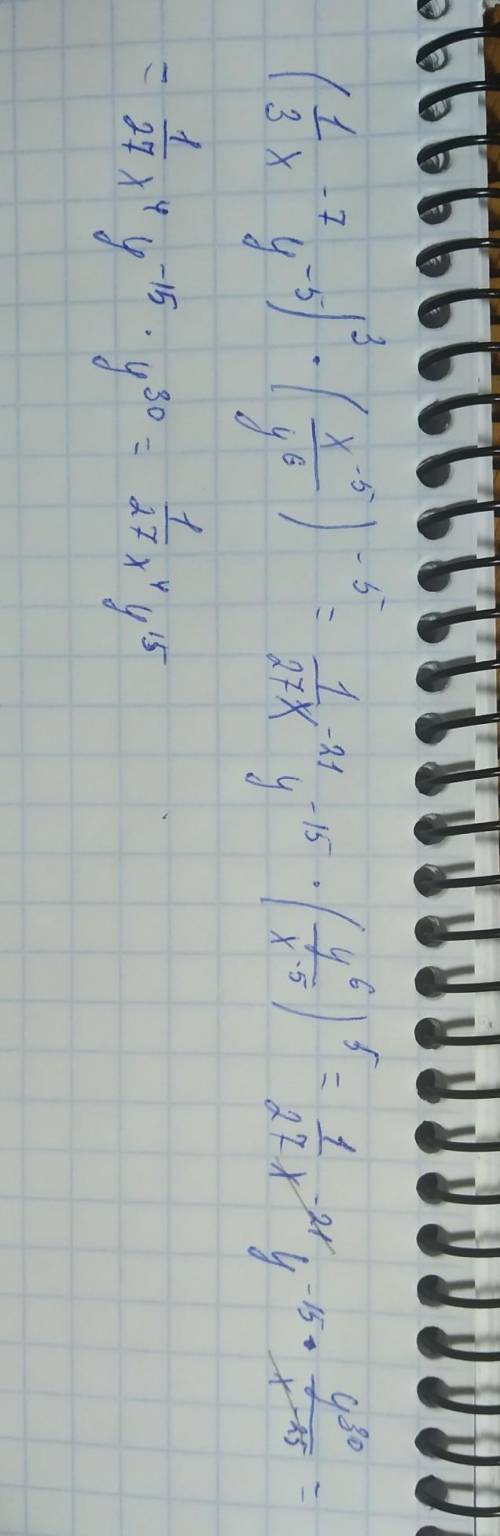 (1/3 x^-7 y^-5)^3 · (x^-5/y^6)^-5 = 1/27 x^-21 y^-15 · (y^6/x^-5)^5 = 1/27 x^-21 y^-15 · y^30/x^-25 =
= 1/27 x^4 y^-15 · y^30 = 1/27 x^4 y^15